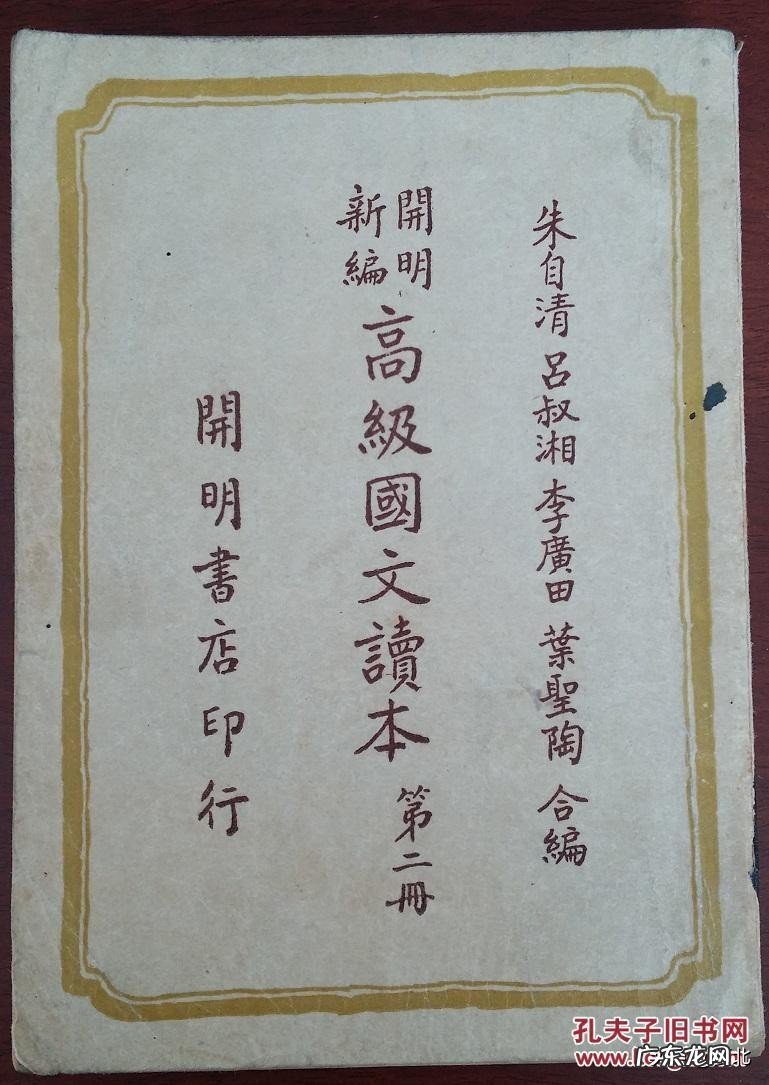 朱自清 呂叔湘 李廣田 葉聖陶 合編
開明
新編
高級國文讀本 第二冊
開明書店印行
孔夫子旧书网
广东龙网
北